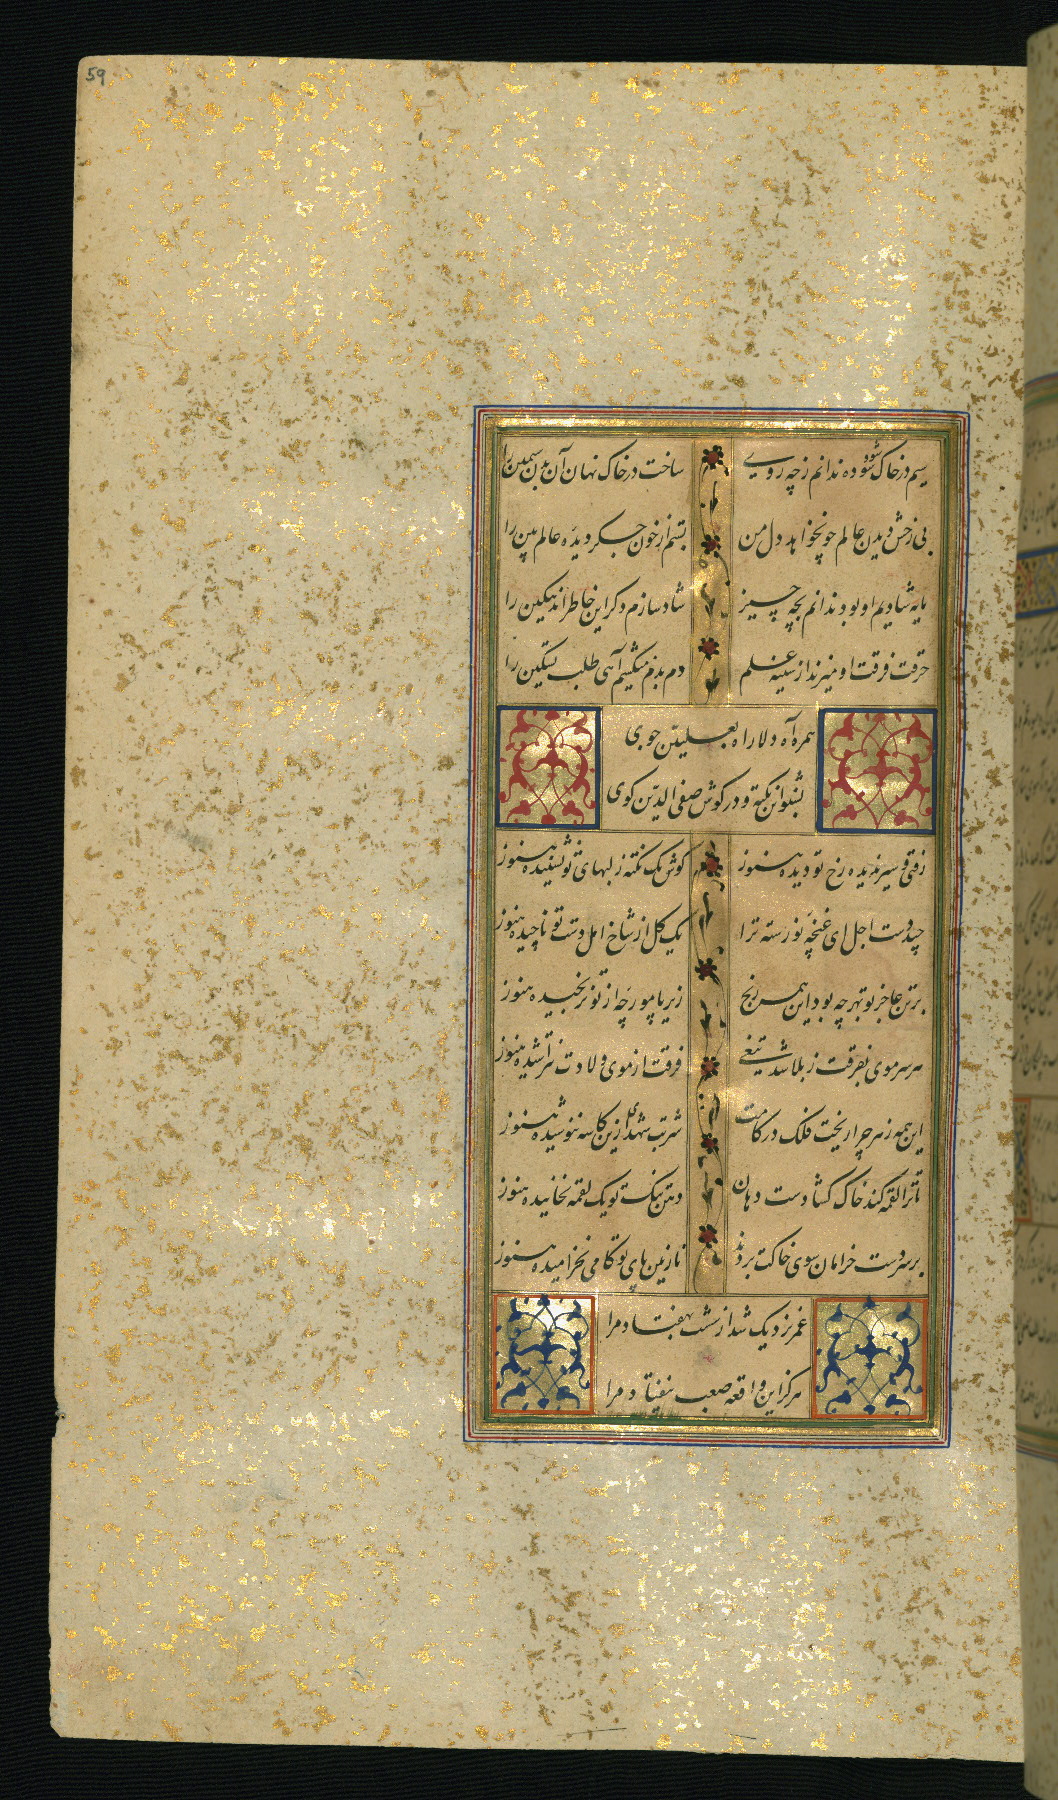 59
سیم در خاک شود سوده ندانم ز چه روی ساخت در خاک نهان آن بدن سیمین را
بی رخش دیدن عالم چو نخواهد دل من بستم از خون جگر دیده عالم بین را
مایه شادیم او بود ندانم بچه چیز شاد سازم دگر این خاطر اندهگین را
حرقت فرقت او میزند از سینه علم دم بدم میکشم آهی طلب تسکین را
همره آه دلا راه بعلیین جوی
بشنو این نکته و در گوش صفی الدین گوی
رفتی و سیر ندیده رخ تو دیده هنوز گوش یک نکته ز لبهای تو نشنیده هنوز
چید دست اجل ای غنچه نورسته ترا یک گل از شاخ امل دست تو ناچیده هنوز
بر تن عاجز تو بهر چه بود این همه رنج زیر پا مورچه از تو نرنجیده هنوز
هر سر موی بفرقت ز بلا شد تیغی فرقت از موی ولادت نتراشیده هنوز
این همه زهر چرا ریخت فلک در کامت شربت شهدی ازین کاسه ننوشیده هنوز
تا ترا لقمه کند خاک گشادست دهان دهن تنگ تو یک لقمه نخاییده هنوز
بر سر دست خرامان سوی خاکت بردند نازنین پای تو گامی نخرامیده هنوز
عمر نزدیک شد از شست بهفتاد مرا
هرگز این واقعه صعب نیفتاد مرا